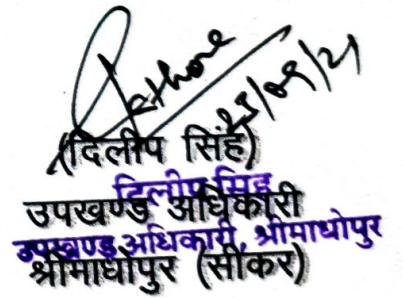 Rathore
25/09/21
(दिलीप सिंह)
दिलीप सिंह
उपखण्ड अधिकारी
उपखण्ड अधिकारी, श्रीमाधोपुर
श्रीमाधोपुर (सीकर)